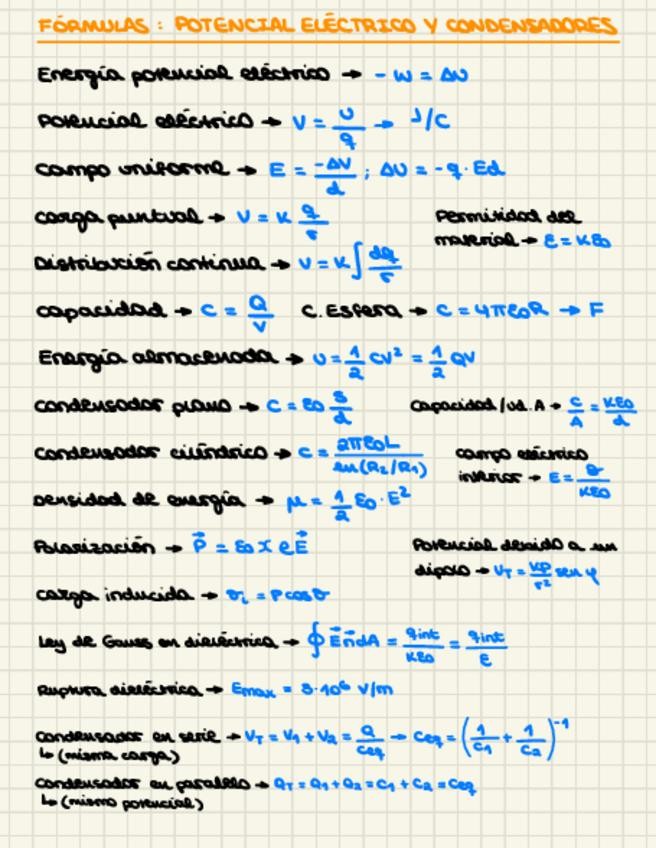 FÓRMULAS: POTENCIAL ELÉCTRICO Y CONDENSADORES
Energía potencial eléctrico → -W = ΔU
Potencial eléctrico → V = U/q → J/C
Campo uniforme → E = -ΔV/d ; ΔU = -q·Ed
Carga puntual → V = K q/r
Permitividad del
material → ε = Kε0
Distribución continua → V = K∫ dq/r
Capacidad → C = Q/V C. Esfera → C = 4πε0R → F
Energía almacenada → U = 1/2 CV² = 1/2 QV
Condensador plano → C = ε0 S/d Capacidad/ud. A → C/A = Kε0/d
Condensador cilíndrico → C = 2πε0L/ln(R2/R1)
Campo eléctrico
inferior → E = σ/Kε0
Densidad de energía → μ = 1/2 ε0·E²
Polarización → P⃗ = ε0 χ e E⃗
Potencial debido a un
dipolo → VT = KP/r² sen φ
Carga inducida → σi = P cos θ
Ley de Gauss en dieléctrica → ∮ E⃗ n⃗ dA = qint/Kε0 = qint/ε
Ruptura dieléctrica → Emax = 3·10⁶ V/m
Condensador en serie → VT = V1 + V2 = Q/Ceq → Ceq = (1/C1 + 1/C2)⁻¹
↳ (misma carga)
Condensador en paralelo → QT = Q1 + Q2 = C1 + C2 = Ceq
↳ (mismo potencial)